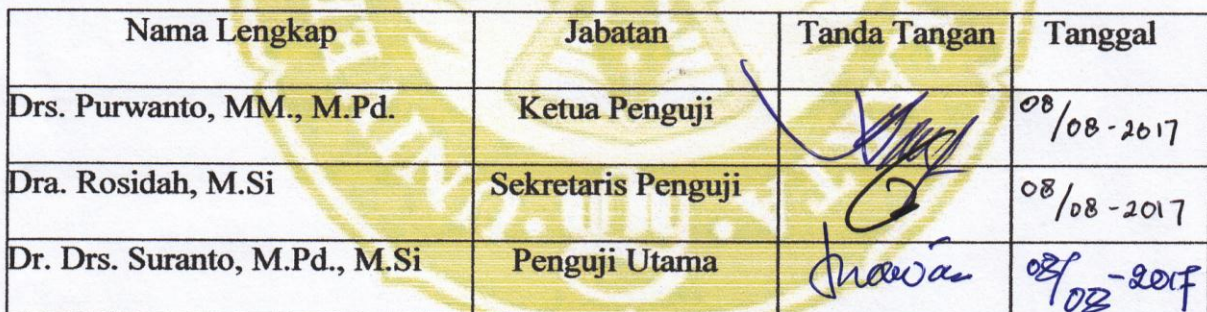 Nama Lengkap Jabatan Tanda Tangan Tanggal
Drs. Purwanto, MM., M.Pd. Ketua Penguji 08/08-2017
Dra. Rosidah, M.Si Sekretaris Penguji 08/08-2017
Dr. Drs. Suranto, M.Pd., M.Si Penguji Utama 08/08-2017